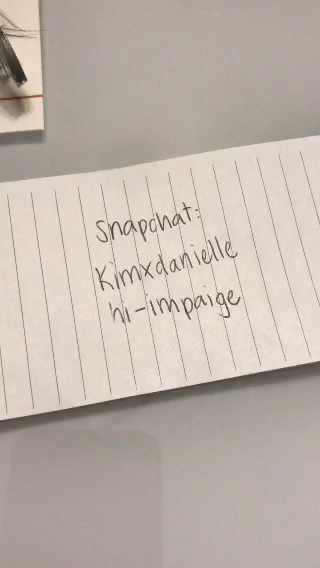 Snapchat:
Kimxdanielle
hi-impaige